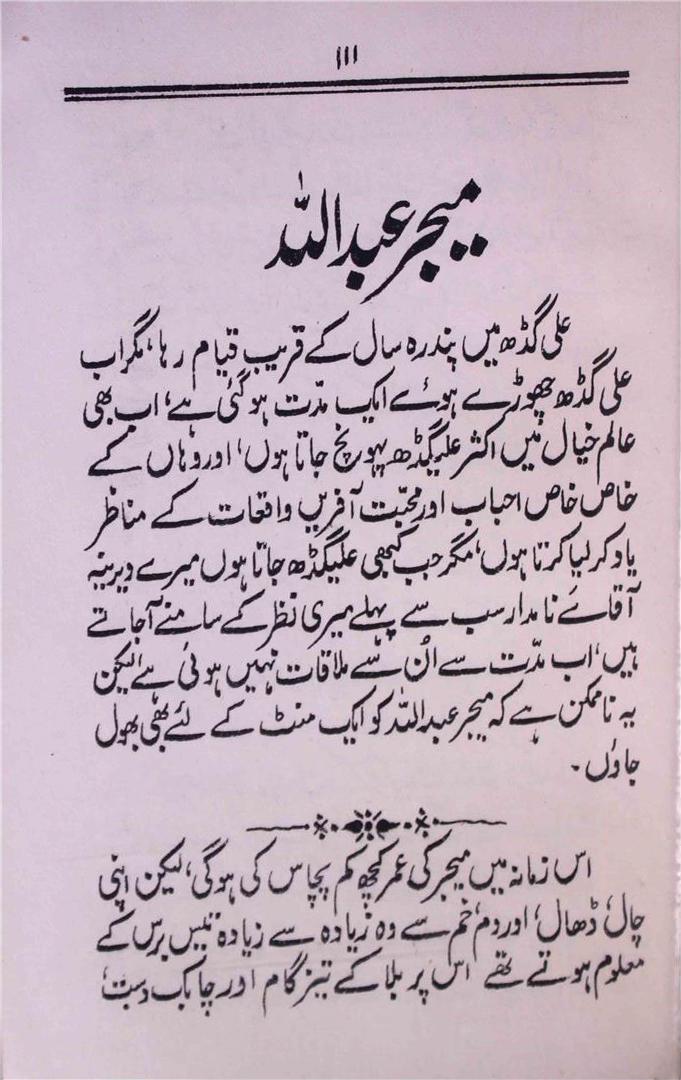 ۱۱۱
میجر عبداللہ
علی گڈھ میں پندرہ سال کے قریب قیام رہا، مگر اب
علی گڈھ چھوڑے ہوئے ایک مدّت ہو گئی ہے، اب بھی
عالم خیال میں اکثر علیگڈھ پہونچ جاتا ہوں، اور وہاں کے
خاص خاص احباب اور محبّت آفریں واقعات کے مناظر
یاد کر لیا کرتا ہوں، مگر جب کبھی علیگڈھ جاتا ہوں میرے دیرینہ
آقائے نامدار سب سے پہلے میری نظر کے سامنے آجاتے
ہیں، اب مدّت سے اُن سے ملاقات نہیں ہوئی ہے، لیکن
یہ ناممکن ہے کہ میجر عبداللہ کو ایک منٹ کے لئے بھی بھول
جاؤں ۔
اس زمانہ میں میجر کی عمر کچھ کم پچاس کی ہوگی، لیکن اپنی
چال، ڈھال، اور دم، خم سے وہ زیادہ سے زیادہ تیس برس کے
معلوم ہوتے تھے اس پر بلا کے تیز گام اور چابک دست،